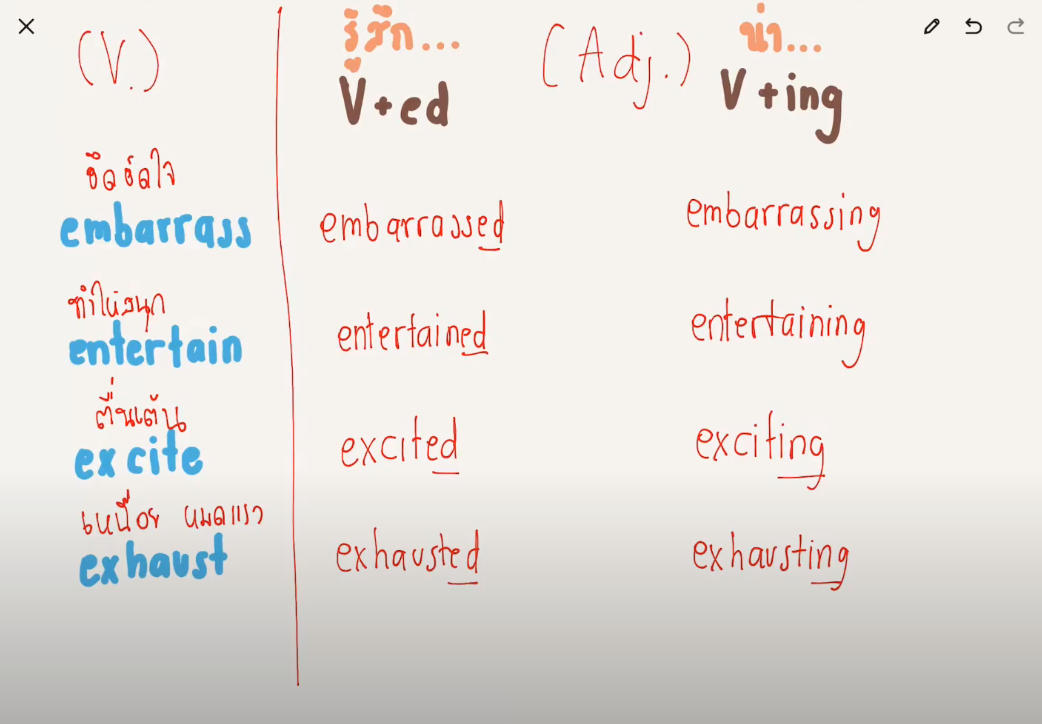 (V.)
รู้สึก...
(Adj.)
น่า...
V+ed
V+ing
อึดอัดใจ
embarrass
embarrassed
embarrassing
ทำให้สนุก
entertain
entertained
entertaining
ตื่นเต้น
excite
excited
exciting
เหนื่อย หมดแรง
exhaust
exhausted
exhausting